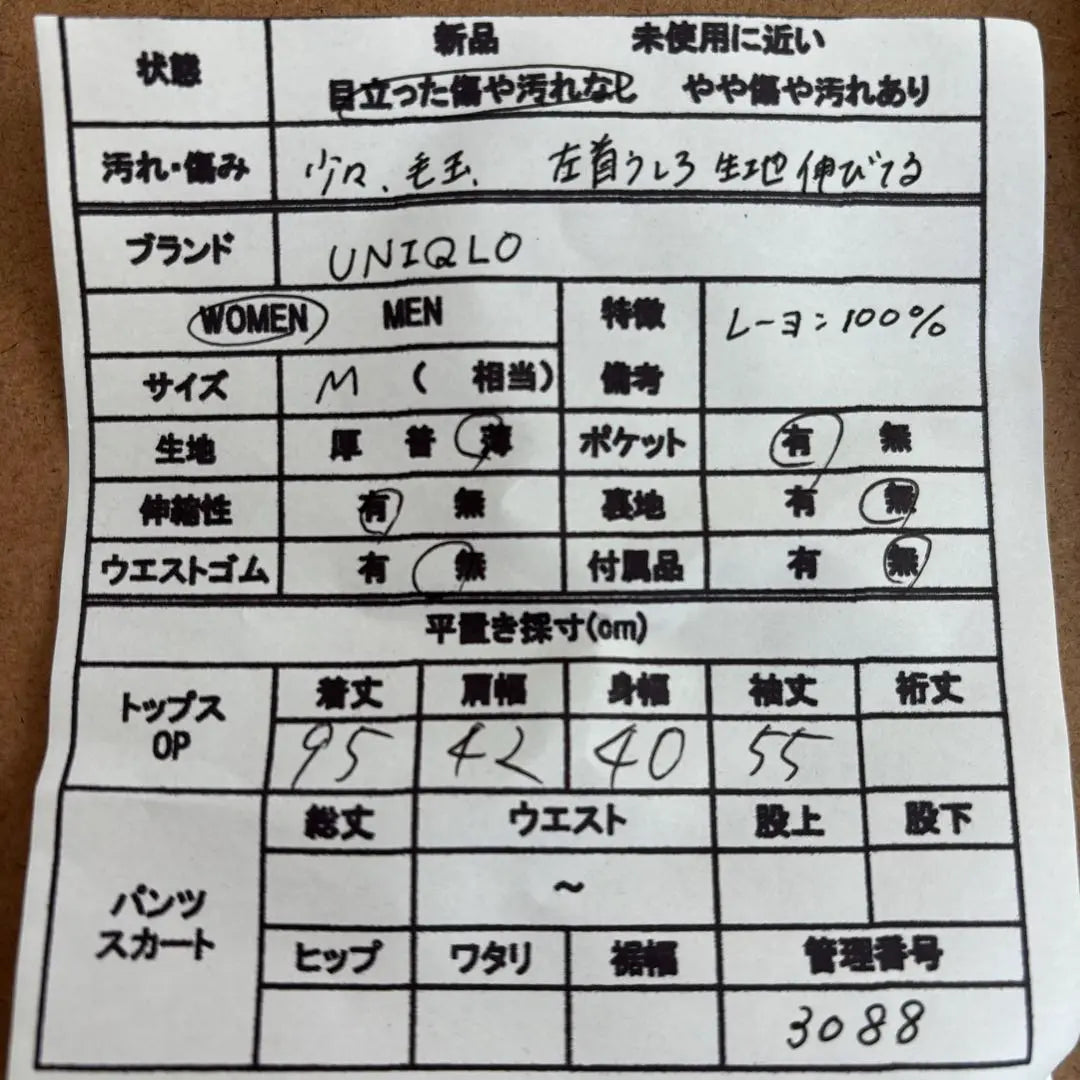 状態 新品 未使用に近い
目立った傷や汚れなし やや傷や汚れあり
汚れ・傷み 少々、毛玉、 左首うしろ 生地 伸びてる
ブランド UNIQLO
WOMEN MEN 特徴 レーヨン100%
サイズ M ( 相当) 備考
生地 厚 普 薄 ポケット 有 無
伸縮性 有 無 裏地 有 無
ウエストゴム 有 無 付属品 有 無
平置き採寸(cm)
トップス OP 着丈 肩幅 身幅 袖丈 裄丈
95 42 40 55
パンツ スカート 総丈 ウエスト 股上 股下
～
ヒップ ワタリ 裾幅 管理番号
3088